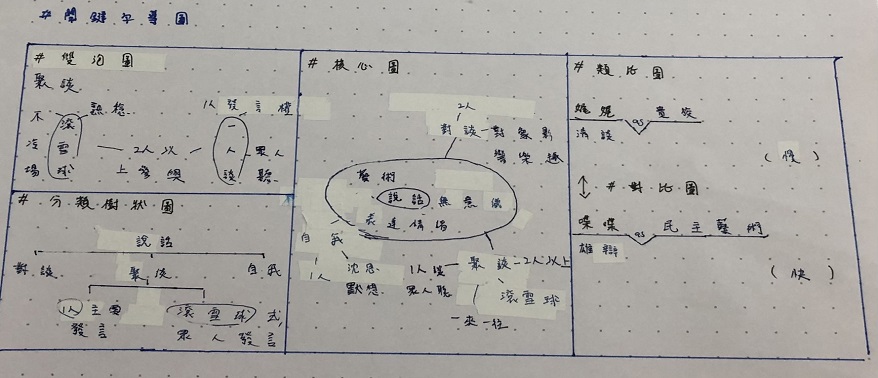 # 關鍵字導圖
# 雙泡圖
聚談
不冷場
滾雪球
2人以上參與
以發言權
一人談
眾人聽
# 分類樹狀圖
說話
對談 聚談 自我
1人主要發言
滾雪球式
眾人發言
# 核心圖
2人
對談-對象影響樂趣
藝術
說話 無意識
表達情緒
自我
1人
沈思
默想
1人談
眾人聽
聚談-2人以上
滾雪球
一來一往
# 類比圖
娓娓 as
清談
(慢)
↕ # 對比圖
喋喋 as 民主藝術
雄辯
(快)